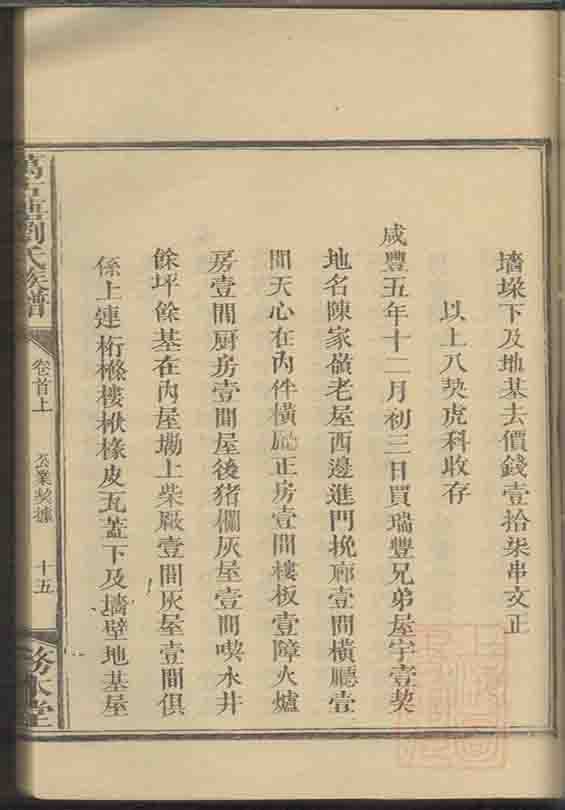 墻垛下及地基去價錢壹拾柒串文正
以上八契虎科收存
咸豐五年十二月初三日買瑞豐兄弟屋宇壹契
地名陳家嶺老屋西邊進門挽廊壹間橫廳壹
間天心在內伴橫廳正房壹間樓板壹障火爐
房壹間厨房壹間屋後猪欄灰屋壹間喫水井
餘坪餘基在內屋塝上柴厰壹間灰屋壹間俱
係上連桁條樓楸椽皮瓦蓋下及墻壁地基屋
劉氏族譜
卷首上
公業契據
十五
務本堂